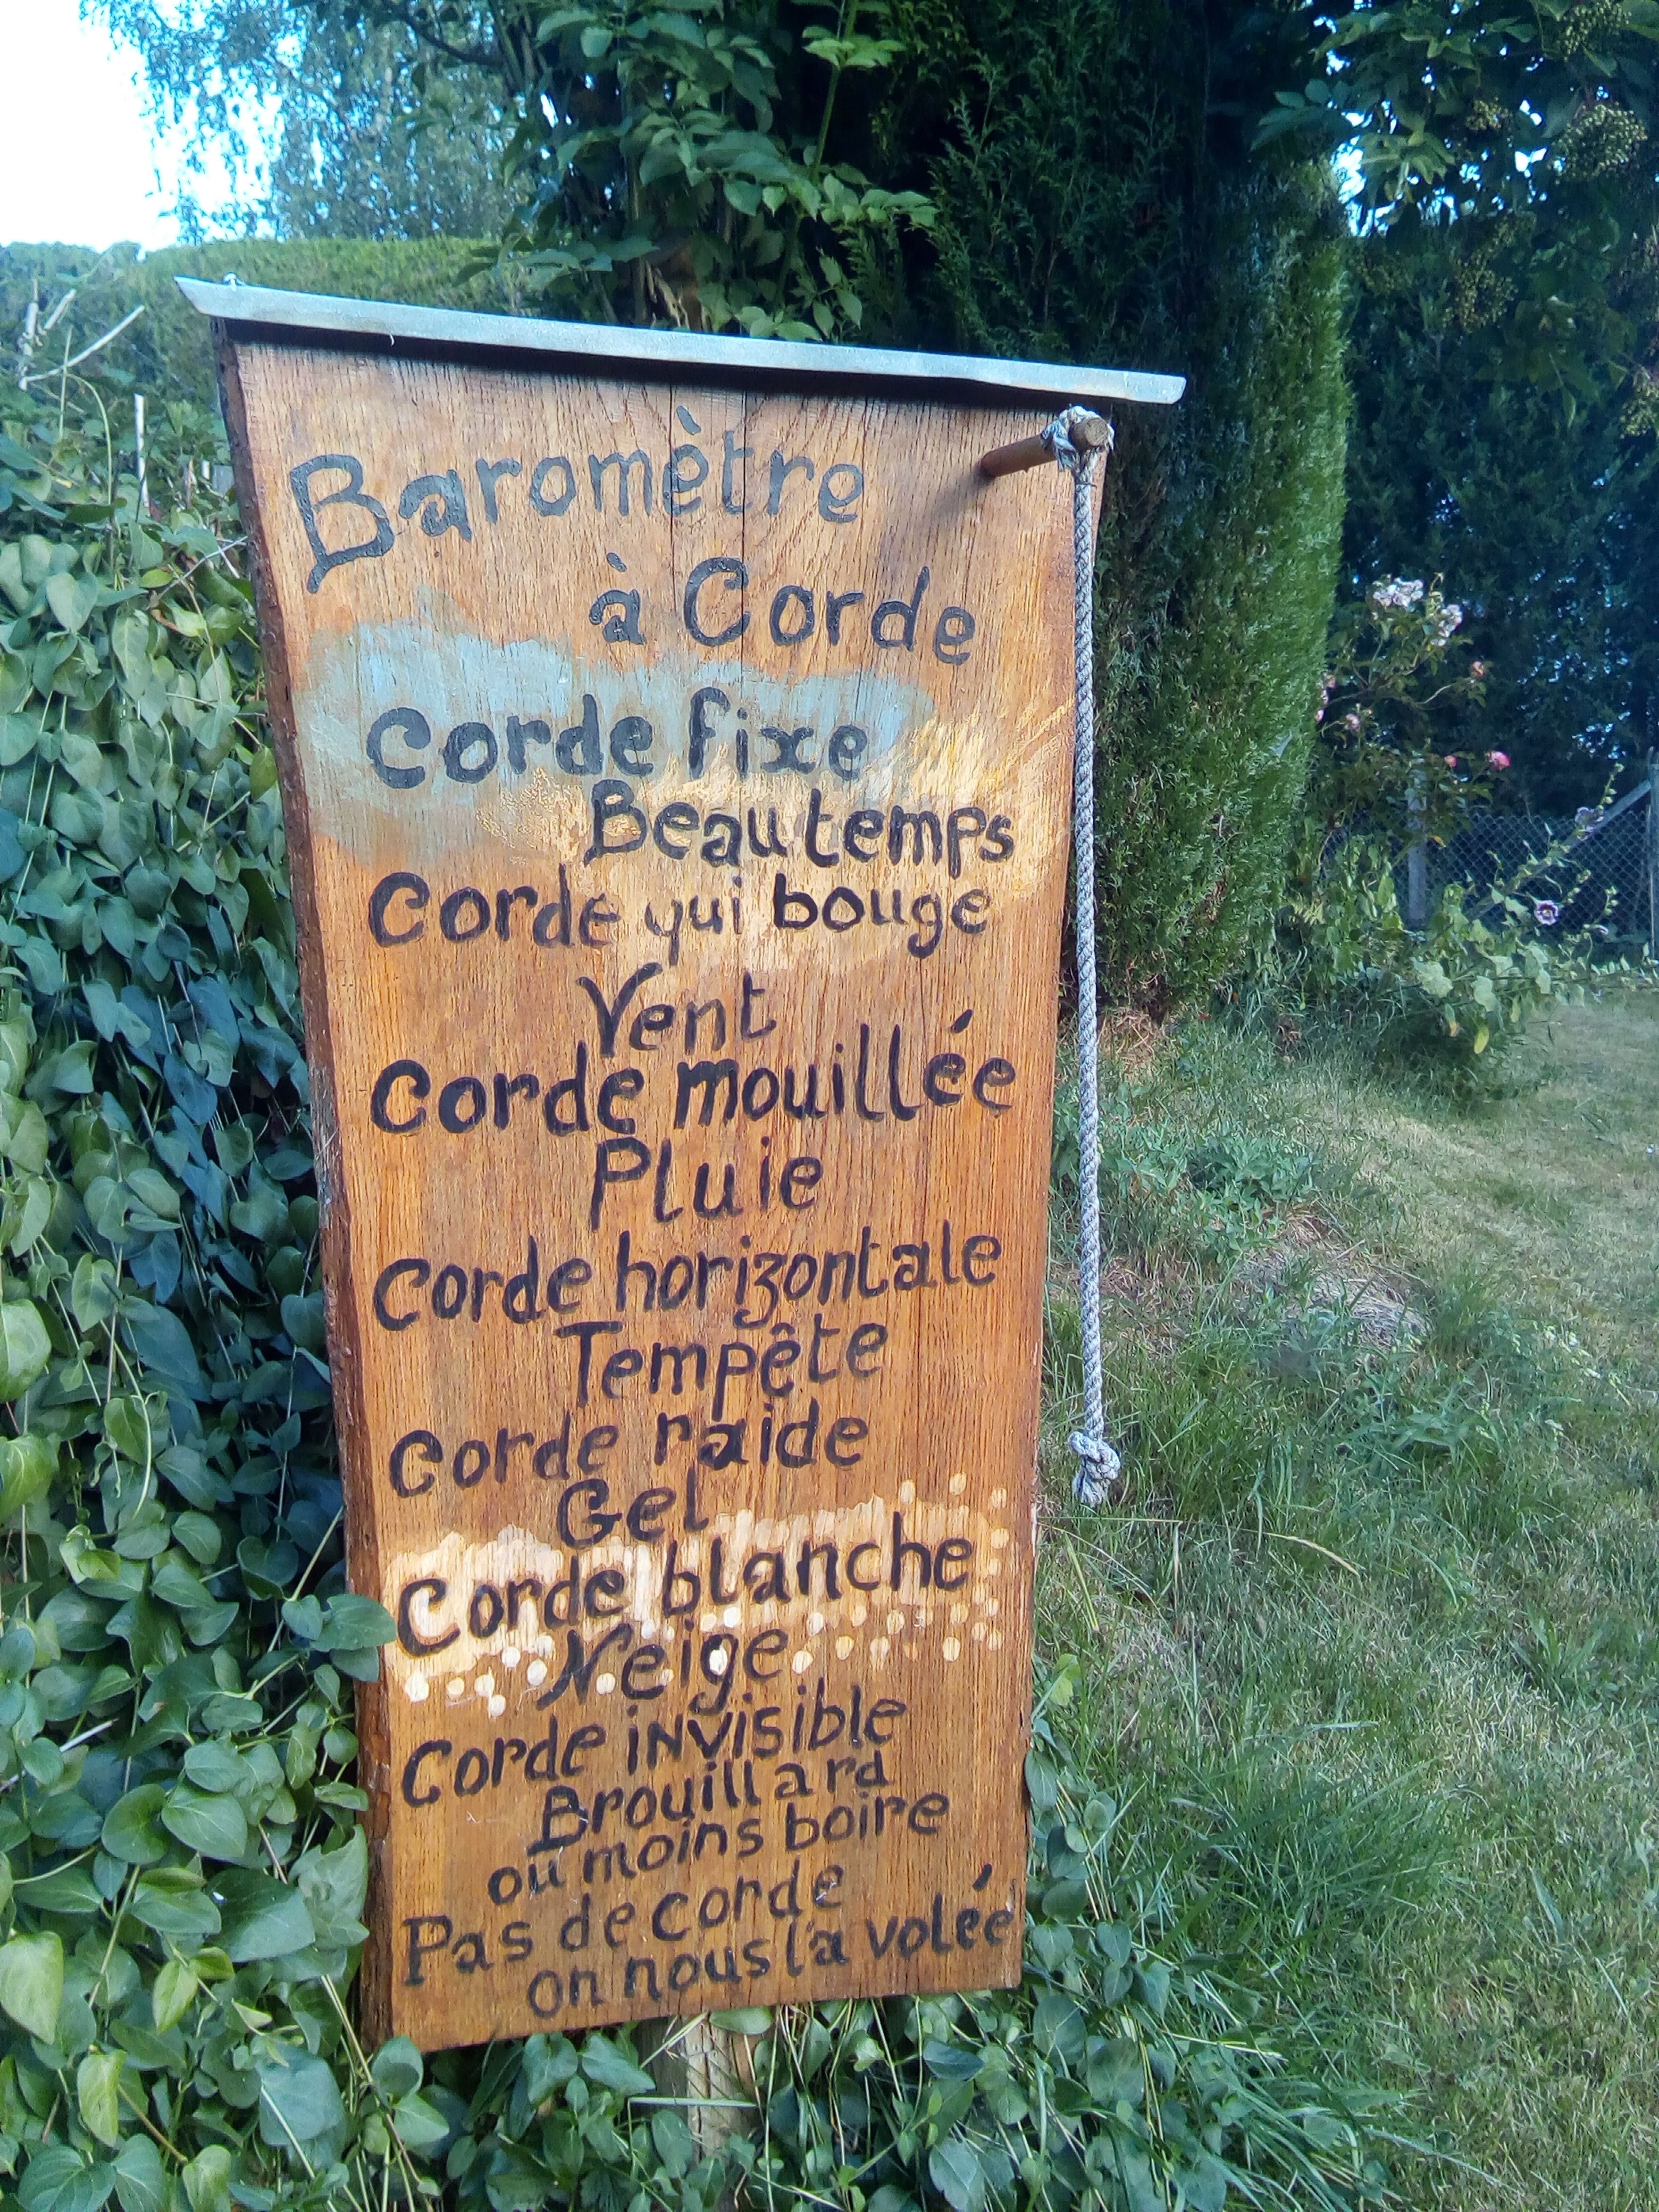 Baromètre
à Corde
Corde fixe
Beau temps
Corde qui bouge
Vent
Corde mouillée
Pluie
Corde horizontale
Tempête
Corde raide
Gel
Corde blanche
Neige
Corde invisible
Brouillard
ou moins boire
Pas de corde
on nous l'a volée